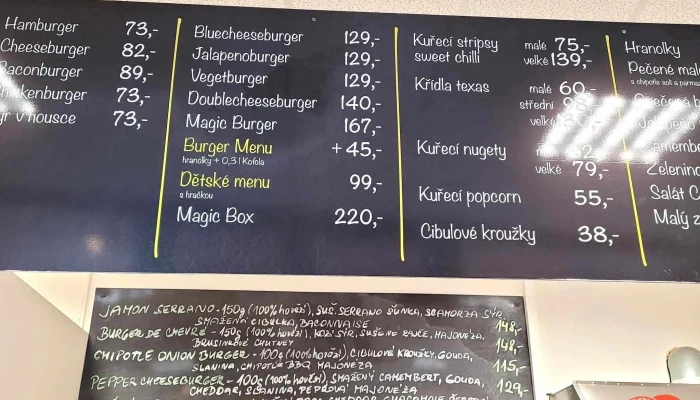 Hamburger 73,-
Cheeseburger 82,-
Baconburger 89,-
73,-
v housce 73,-
Bluecheeseburger 129,-
Jalapenoburger 129,-
Vegetburger 129,-
Doublecheeseburger 140,-
Magic Burger 167,-
Burger Menu +45,-
hranolky + 0,3 l Kofola
Dětské menu 99,-
s hračkou
Magic Box 220,-
Kuřecí stripsy malé 75,-
sweet chilli velké 139,-
Křídla texas malé 60,-
střední
velké
Kuřecí nugety
velké 79,-
Kuřecí popcorn 55,-
Cibulové kroužky 38,-
Hranolky
Pečené mal
s chipotle solí a parma
Zelenino
Salát C
Malý z
JAMON SERRANO - 150g (100% hovězí), SUŠ. SERRANO ŠUNKA, SCAMORZA SÝR,
SMAŽENÁ CIBULKA, BACONNAISE 148,-
BURGER DE CHEVRÉ - 150g (100% hovězí), KOZÍ SÝR, SUŠENÉ RAJČE, MAJONÉZA,
BRUSINKOVÉ CHUTNEY 148,-
CHIPOTLE ONION BURGER - 100g (100% hovězí), CIBULOVÉ KROUŽKY, GOUDA,
SLANINA, CHIPOTLE BBQ MAJONÉZA 115,-
PEPPER CHEESEBURGER - 100g (100% hovězí), SMAŽENÝ CAMEMBERT, GOUDA,
CHEDDAR, SLANINA, PEPŘOVÁ MAJONÉZA 129,-